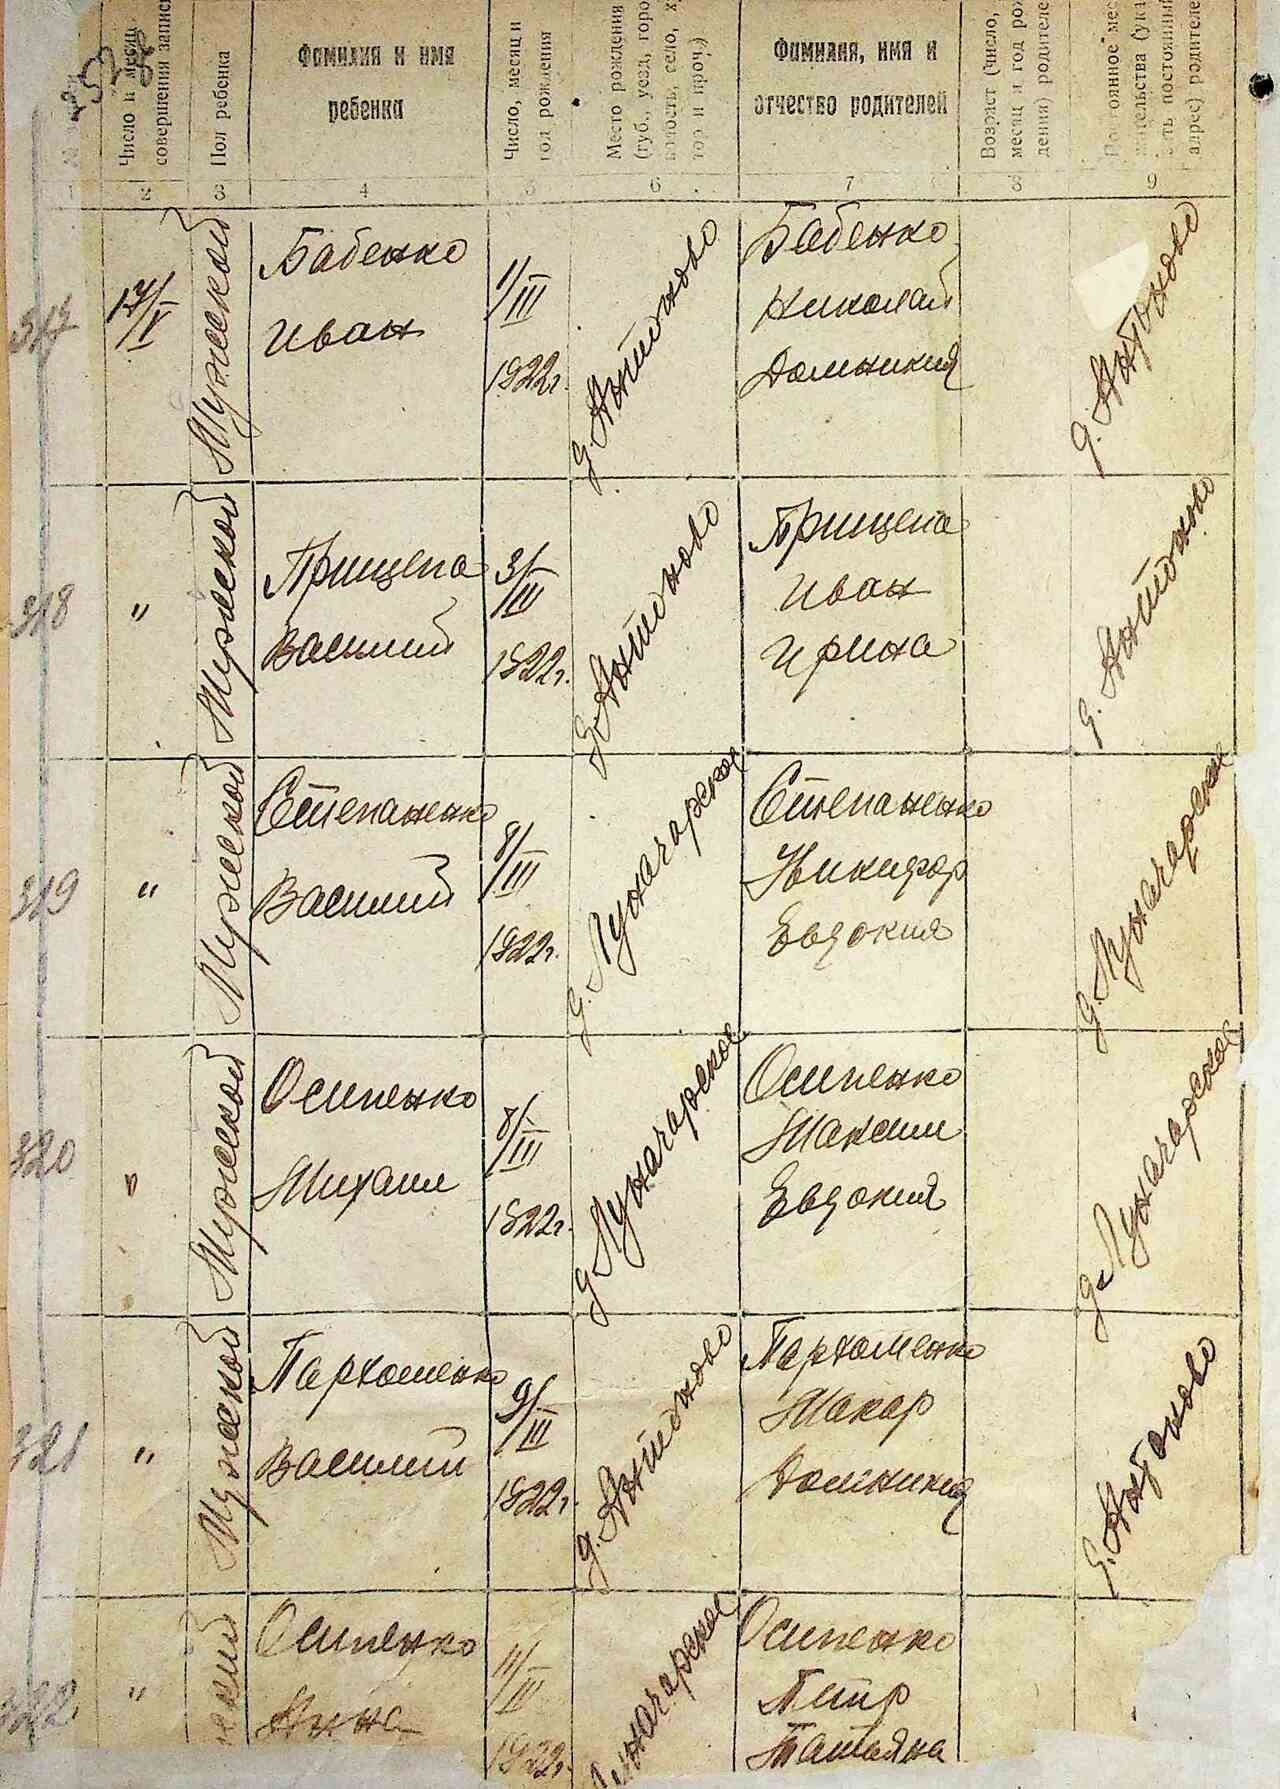 252
Число и месяц
совершения записи
Пол ребенка
Фамилия и имя
ребенка
Число, месяц и
год рождения
Место рождения
(губ., уезд, горо
волость, село, х
тор и проч.)
Фамилия, имя и
отчество родителей
Возраст (число,
месяц и год рож
дения) родителе
Постоянное мес
жительства (ука
ать постоянный
адрес) родителе
1 2 3 4 5 6 7 8 9
317
17/V
Мужеской
Бабенко
Иван
1/III
1922г.
д. Антоново
Бабенко
Николай
Домникия
д. Антоново
318
"
Мужеской
Прищепа
Василий
3/III
1922г.
д. Антоново
Прищепа
Иван
Ирина
д. Антоново
319
"
Мужеской
Степаненко
Василий
8/III
1922г.
д. Луначарское
Степаненко
Никифор
Евдокия
д. Луначарское
320
"
Мужеской
Осипенко
Михаил
8/III
1922г.
д. Луначарское
Осипенко
Максим
Евдокия
д. Луначарское
321
"
Мужеской
Пархоменко
Василий
9/III
1922г.
д. Антоново
Пархоменко
Макар
Домникия
д. Антоново
322
"
ский
Осипенко
Анна
1922г.
Луначарское
Осипенко
Петр
Татьяна